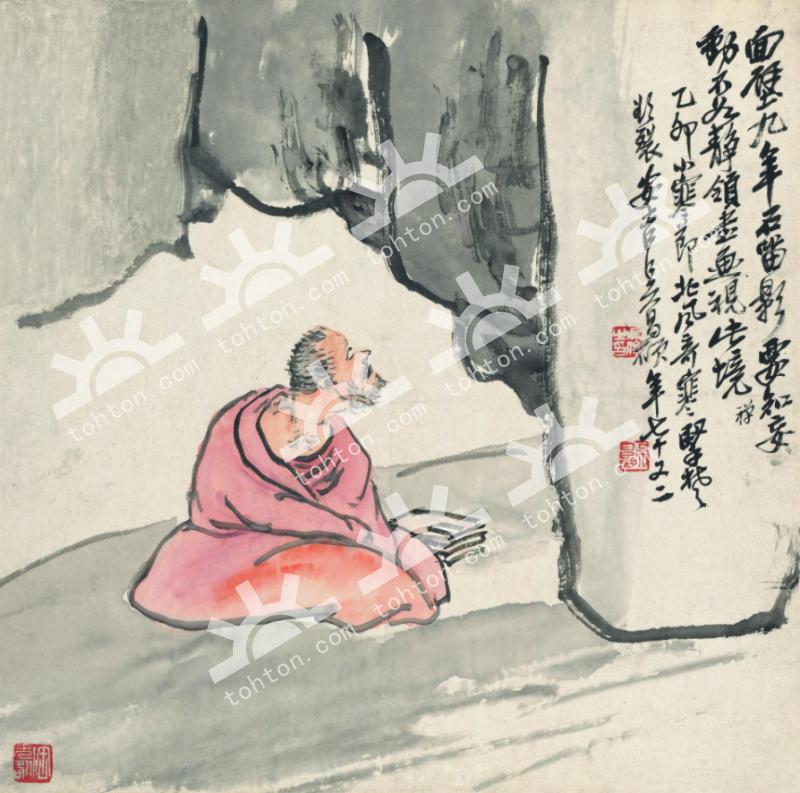 面壁九年石留影要知妄
動不如靜領盡畫視此境 禪
乙卯小寒節北風奇寒
欲裂安吉吳昌碩年七十又二
tohton.com
tohton.com
tohton.com
tohton.com
tohton.com
tohton.com
tohton.com
tohton.com
tohton.com